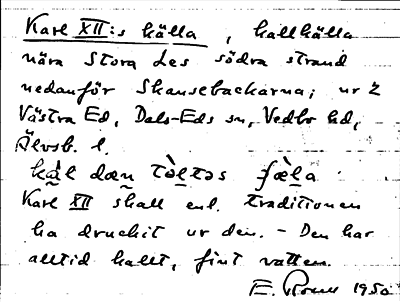 Karl XII:s källa, kallkälla
nära Stora Les södra strand
nedanför Skansebackarna; ur 2
Västra Ed, Dals-Eds sn, Vedbo hd,
Älvsb. l.
kàl dæn tòltəs fæ̀la.
Karl XII skall enl. traditionen
ha druckit ur den. – Den har
alltid kallt, fint vatten.
E. 1950